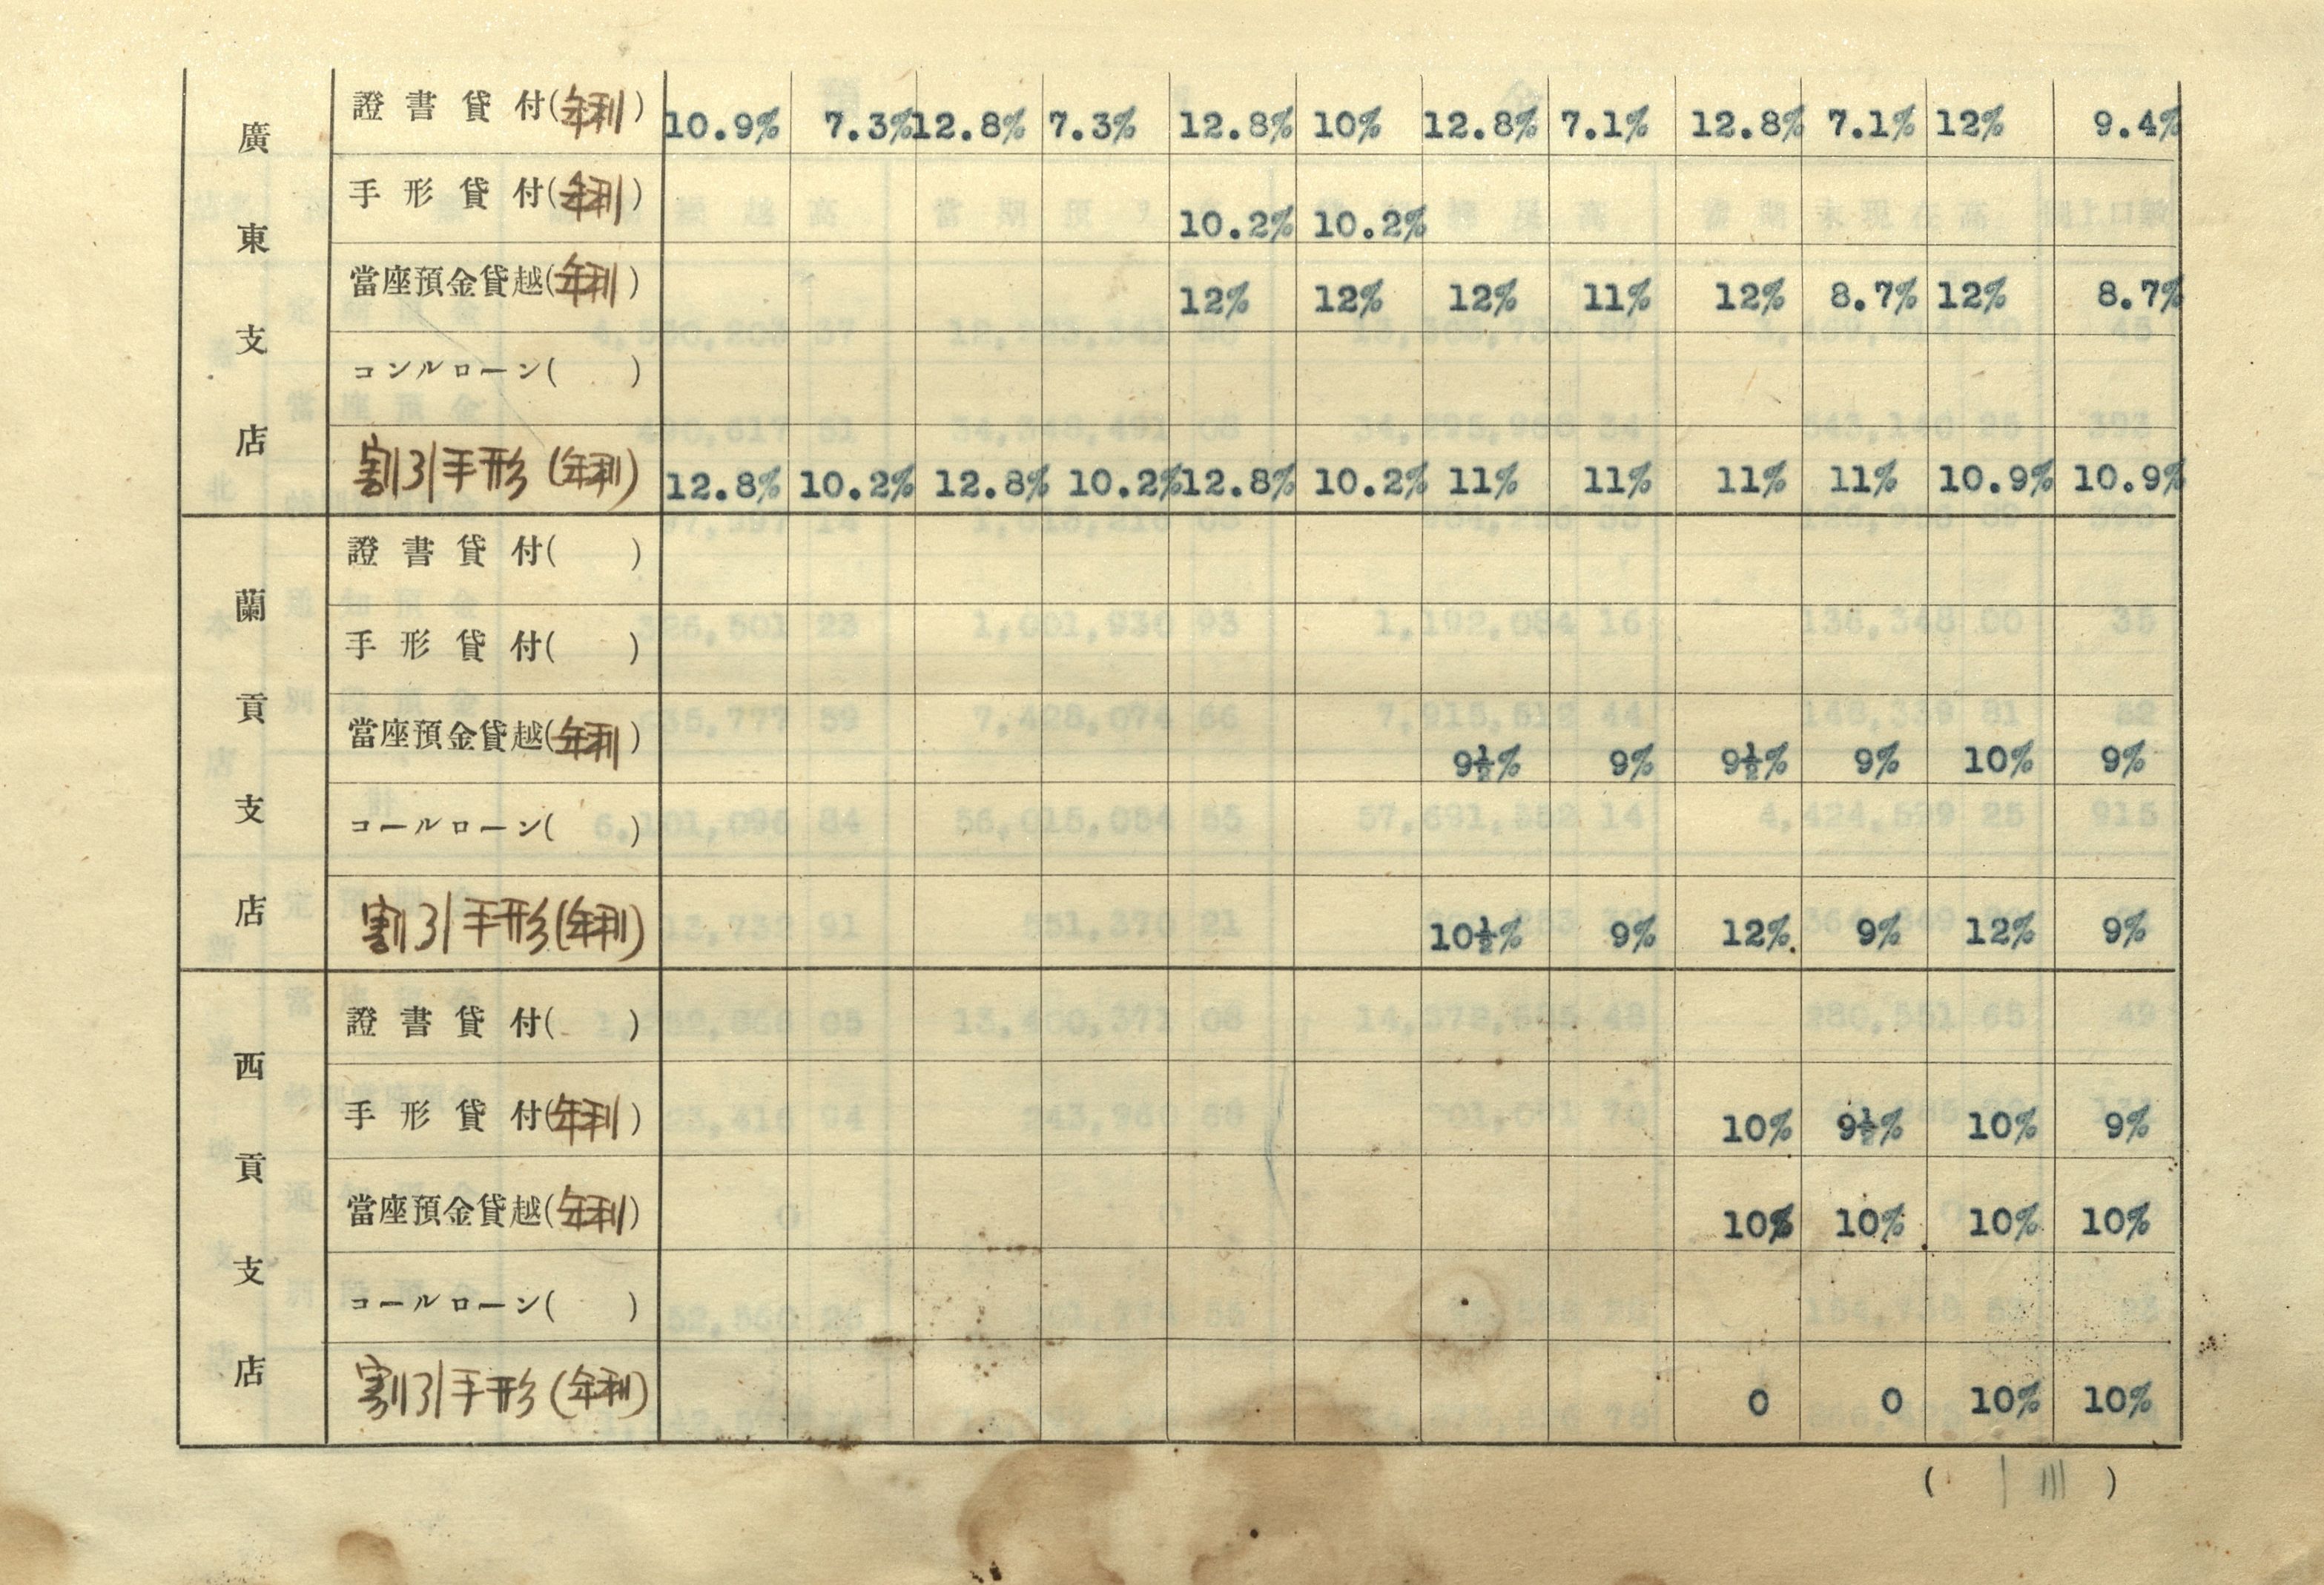 廣東支店
證書貸付(年利) 10.9% 7.3% 12.8% 7.3% 12.8% 10% 12.8% 7.1% 12.8% 7.1% 12% 9.4%
手形貸付(年利) 10.2% 10.2%
當座預金貸越(年利) 12% 12% 12% 11% 12% 8.7% 12% 8.7%
コンルローン( )
割引手形(年利) 12.8% 10.2% 12.8% 10.2% 12.8% 10.2% 11% 11% 11% 11% 10.9% 10.9%
蘭貢支店
證書貸付( )
手形貸付( )
當座預金貸越(年利) 9½% 9% 9½% 9% 10% 9%
コールローン( )
割引手形(年利) 10½% 9% 12% 9% 12% 9%
西貢支店
證書貸付( )
手形貸付(年利) 10% 9½% 10% 9%
當座預金貸越(年利) 10% 10% 10% 10%
コールローン( )
割引手形(年利) 0 0 10% 10%